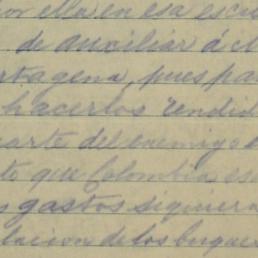 por ella en esa escu
de auxiliár á el
rtagena, pues pa
hacerlos rendid
parte del enemigo
to que Colombia es
s gastos siguiera
lacion de los buques